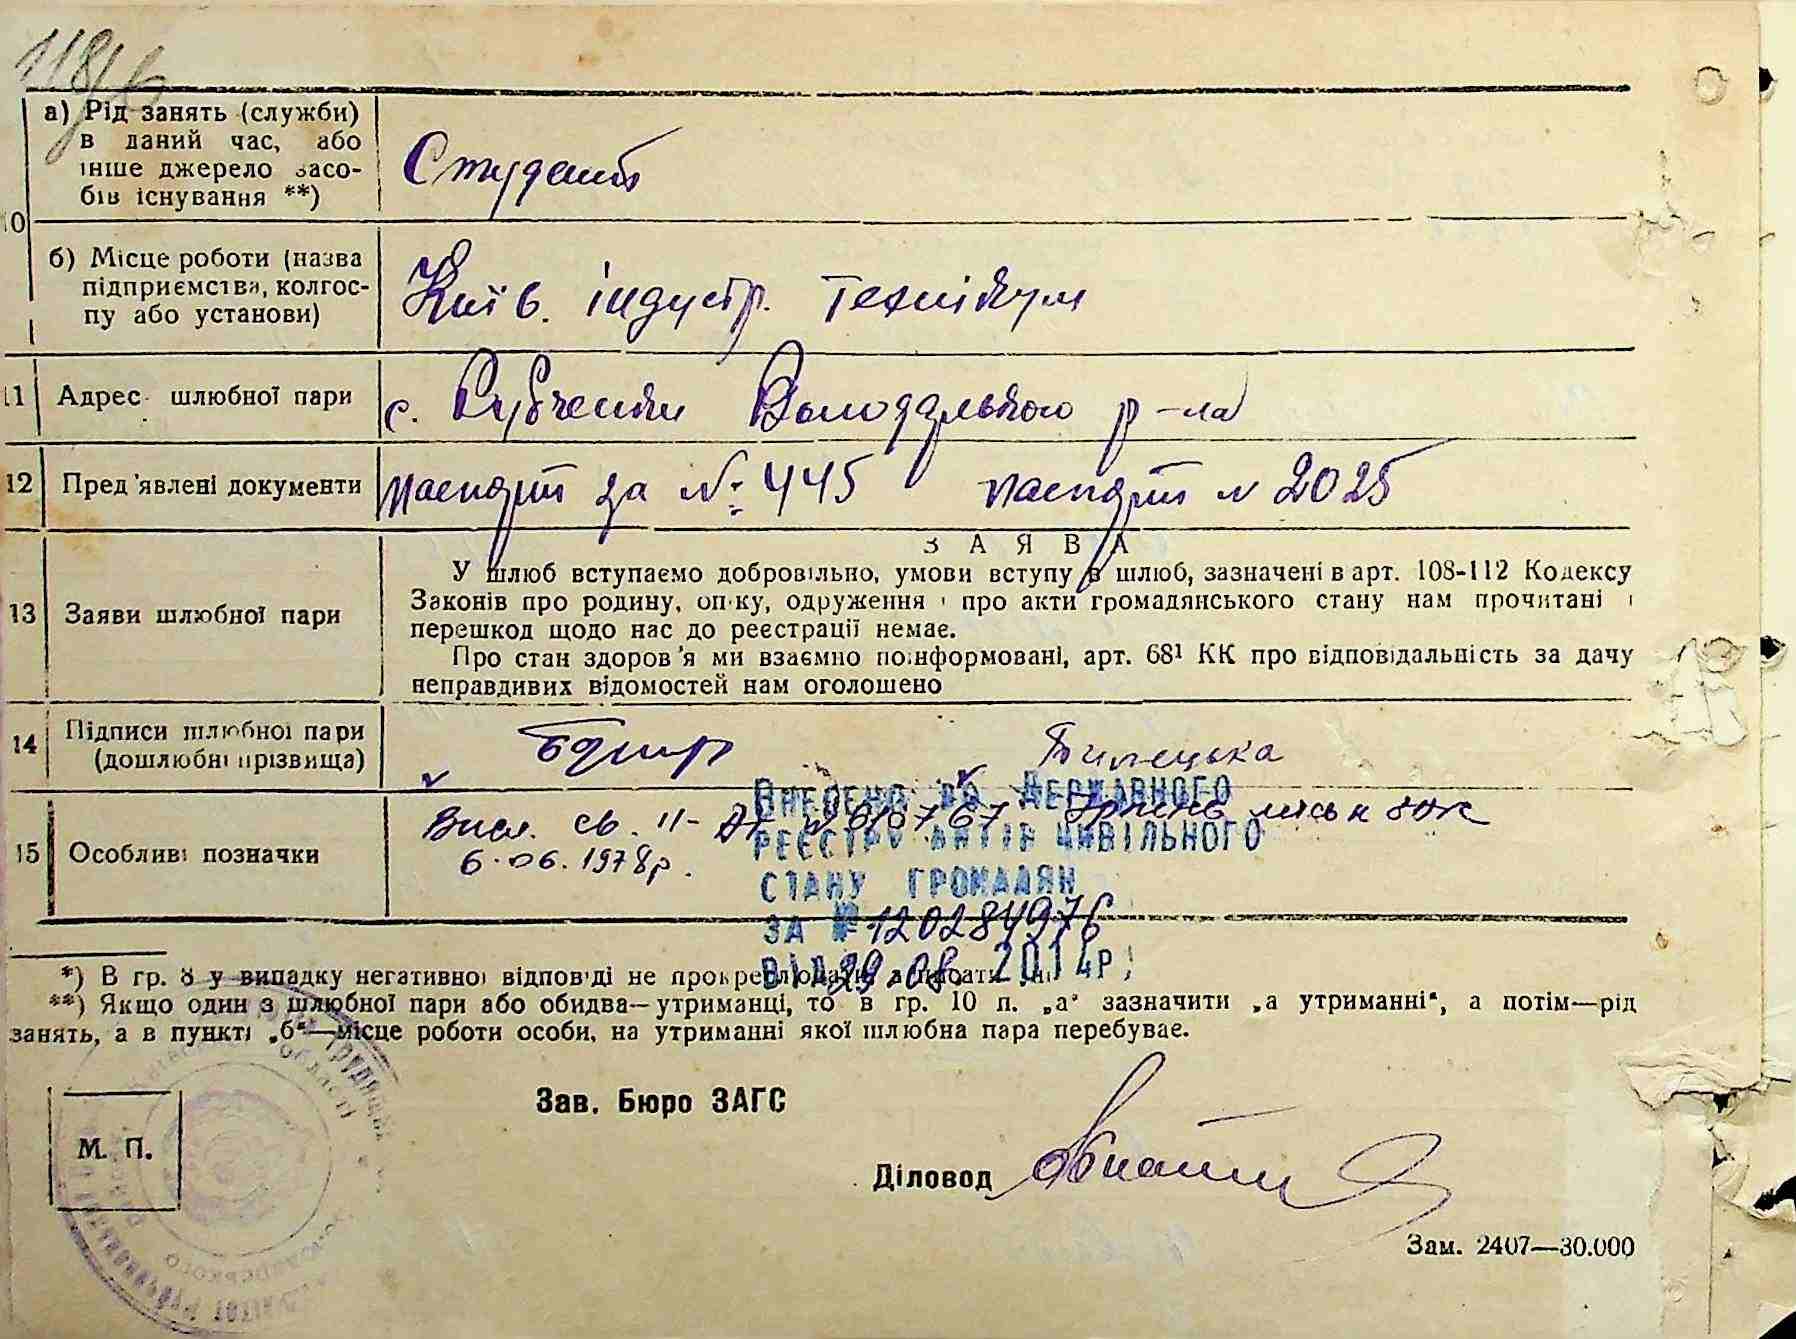 а) Рід занять (служби)
в даний час, або
інше джерело засо-
бів існування **)
Студент
10
б) Місце роботи (назва
підприємства, колгос-
пу або установи)
Київ. індустр. технікум
11 Адрес шлюбної пари
с. Рубченки Володарського р-на
12 Пред'явлені документи
паспорт за №: 445 паспорт N 2025
13 Заяви шлюбної пари
ЗАЯВА
У шлюб вступаємо добровільно, умови вступу в шлюб, зазначені в арт. 108-112 Кодексу
Законів про родину, опіку, одруження і про акти громадянського стану нам прочитані і
перешкод щодо нас до реєстрації немає.
Про стан здоров'я ми взаємно поінформовані, арт. 68¹ КК про відповідальність за дачу
неправдивих відомостей нам оголошено
14 Підписи шлюбної пари
(дошлюбні прізвища)
Билецька
15 Особливі позначки
св. II-
6.06.1978р.
ВНЕСЕНО ДО ДЕРЖАВНОГО
РЕЄСТРУ АКТІВ ЦИВІЛЬНОГО
СТАНУ ГРОМАДЯН
ЗА № 120284976
ВІД 29.08.2014Р.
*) В гр. 8 у випадку негативної відповіді не прокреслювати, а писати „ні“
**) Якщо один з шлюбної пари або обидва—утриманці, то в гр. 10 п. „а“ зазначити „а утриманні“, а потім—рід
занять, а в пункті „б“—місце роботи особи, на утриманні якої шлюбна пара перебуває.
Зав. Бюро ЗАГС
М. П.
Діловод
Зам. 2407—30.000